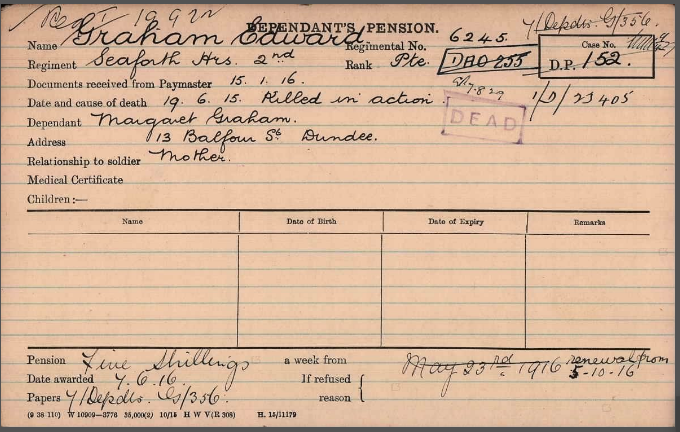 Reg I 1992
DEPENDANT'S PENSION.
Y/Depdts. G/356.
Name Graham Edward Regimental No. 6245. Case No.
Regiment Seaforth Hrs. 2nd Rank Pte. DAO 255 D.P. 152.
Documents received from Paymaster 15. 1. 16.
7-8-29
Date and cause of death 19. 6. 15. Killed in action. 1/D/23405
DEAD
Dependant Margaret Graham.
Address 13 Balfour St. Dundee.
Relationship to soldier Mother.
Medical Certificate
Children:—
Name Date of Birth Date of Expiry Remarks
Pension Five Shillings a week from May 23rd 1916 renewal from
5-10-16
Date awarded 7. 6. 16. If refused
Papers Y/Depdts. G/356. reason
(9 38 110) W 10909—3776 35,000(2) 10/15 H W V(R 308) H. 15/11179